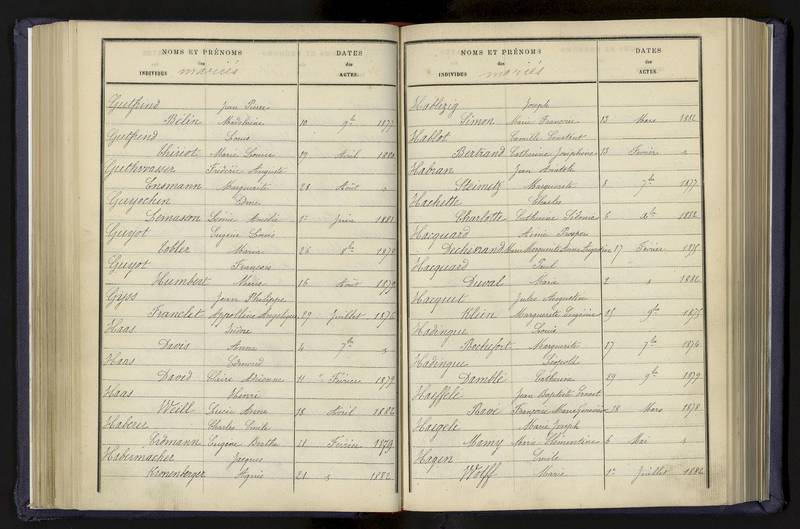 NOMS ET PRÉNOMS DATES
des des
INDIVIDUS mariés ACTES.
Gutfrind Jean Pierre
Bélin Madeleine 10 9bre 1877
Gutfrind Louis
Thiriot Marie Louise 19 Avril 1880
Guthwasser Frédéric Auguste
Ensmann Marguerite 28 Août "
Guyochin
Lemasson 1er Juin 1881
Guyot Eugène Louis
Cobler Marie 26 8bre 1878
Guyot François
Humbert Marie 16 Août 1879
Gyss Jean Philippe
Franclet Appolline Angélique 29 Juillet 1876
Haas Isidore
Davis Anna 4 7bre "
Haas Edmond
David Claire Adrienne 11 Février 1879
Haas Henri
Weill Lucie Anna 18 Avril 1882
Haberer Charles Emile
Erdmann Eugénie Berthe 21 Février 1879
Habermacher Jacques
Kronenberger Agnès 21 " 1882
NOMS ET PRÉNOMS DATES
des des
INDIVIDUS mariés ACTES.
Hablezig Joseph
Simon Marie Françoise 13 Mars 1882
Hablot Camille Constant
Bertrand Catherine Joséphine 13 Février "
Habran Jean Anatole
Steimetz Marguerite 8 7bre 1877
Hachette Charles
Charlotte Catherine 6 Xbre 1882
Hacquard Aimé Prosper
Marie Marguerite 17 Février 1875
Hacquard Paul
Duval Marie 2 " 1882
Hacquet Jules Augustin
Klein Marguerite Eugénie 15 9bre 1875
Hadingue Louis
Rochefort Marguerite 17 7bre 1874
Hadingue Léopold
Damblé Catherine 29 9bre 1879
Haeffelé Jean Baptiste Ernest
Rave Françoise Marie 18 Mars 1878
Haegelé Marie Joseph
Mamy Marie Clémentine 6 Mai "
Hagen Emile
Wolff Marie 1er Juillet 1882